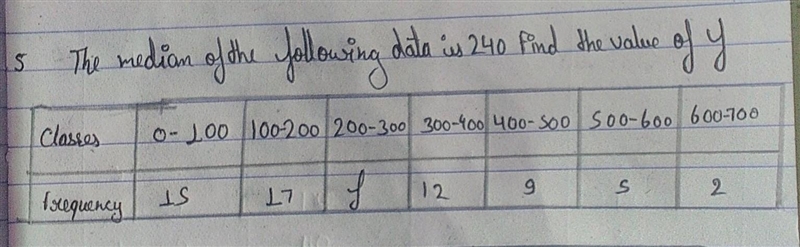 5 The median of the following data is 240 find the value of y
Classes 0-100 100-200 200-300 300-400 400-500 500-600 600-700
frequency 15 17 f 12 9 5 2